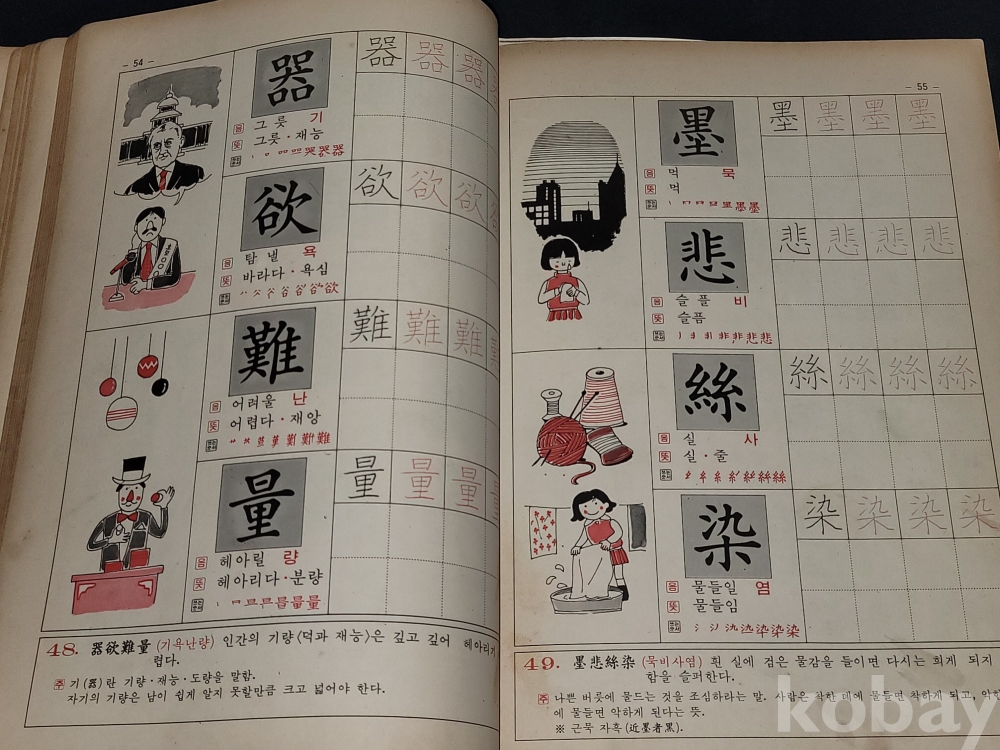 - 54 -
器 器 器 器
음 그릇 기
뜻 그릇·재능
欲 欲 欲 欲
음 탐낼 욕
뜻 바라다·욕심
難 難 難 難
음 어려울 난
뜻 어렵다·재앙
量 量 量 量
음 헤아릴 량
뜻 헤아리다·분량
48. 器欲難量 (기욕난량) 인간의 기량(덕과 재능)은 깊고 깊어 헤아리기
렵다.
주 기(器)란 기량·재능·도량을 말함.
자기의 기량은 남이 쉽게 알지 못할만큼 크고 넓어야 한다.
- 55 -
墨 墨 墨 墨 墨
음 먹 묵
뜻 먹
悲 悲 悲 悲 悲
음 슬플 비
뜻 슬픔
絲 絲 絲 絲 絲
음 실 사
뜻 실·줄
染 染 染 染 染
음 물들일 염
뜻 물들임
49. 墨悲絲染 (묵비사염) 흰 실에 검은 물감을 들이면 다시는 희게 되지
함을 슬퍼한다.
주 나쁜 버릇에 물드는 것을 조심하라는 말. 사람은 착한 데에 물들면 착하게 되고, 악한
에 물들면 악하게 된다는 뜻.
※ 근묵 자흑(近墨者黑).
kobay